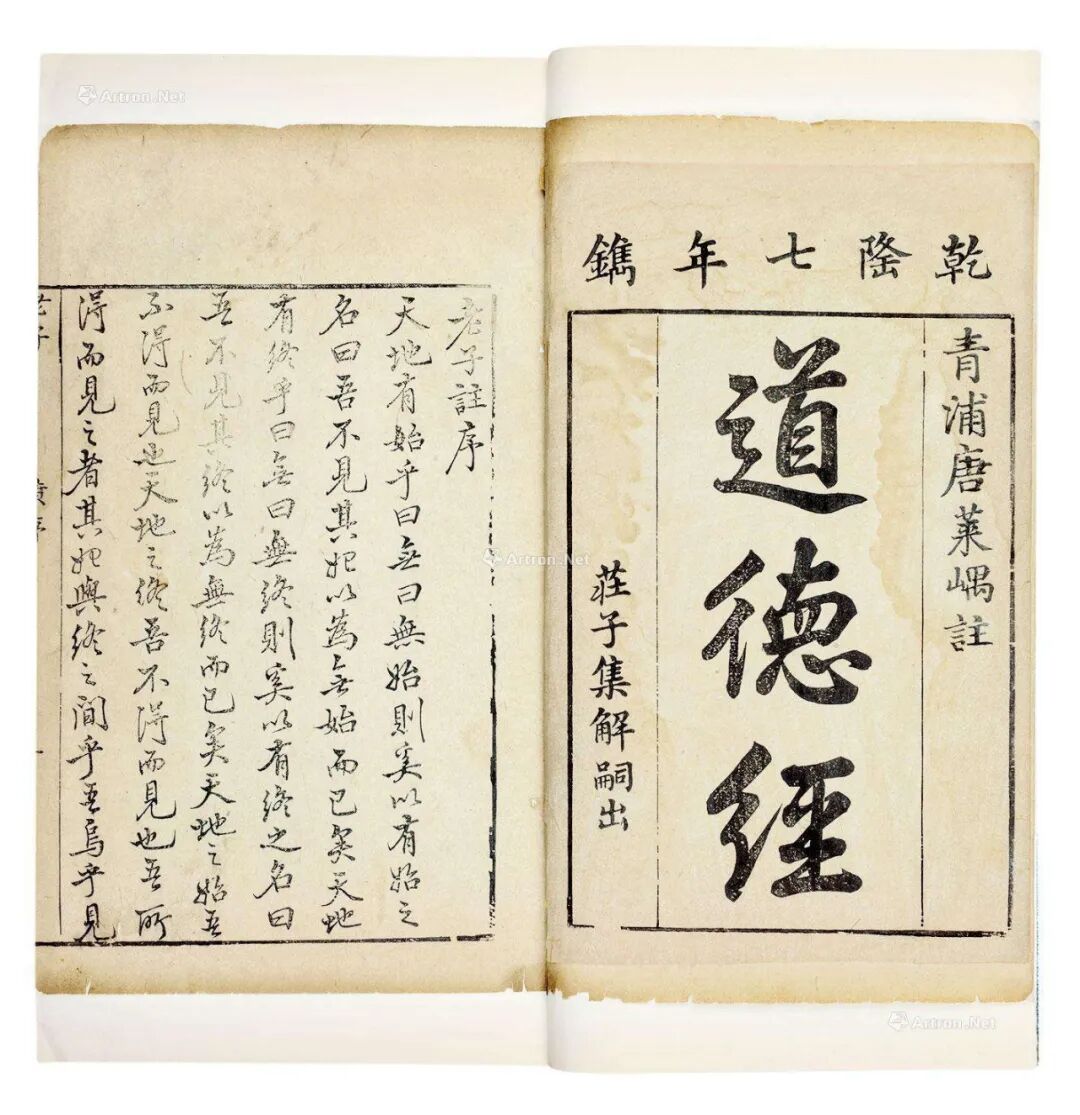 乾隆七年鐫
青浦唐萊嵎註
道德經
荘子集解嗣出
老子註序
天地有始乎曰無曰無始則奚以有始之
名曰吾不見其始以為無始而已矣天地
有終乎曰無曰無終則奚以有終之名曰
吾不見其終以為無終而已矣天地之始吾
不得而見也天地之終吾不得而見也吾所
得而見之者其始與終之間乎吾烏乎見
老子
序
一
Artron.Net
Artron.Net
Artron.Net